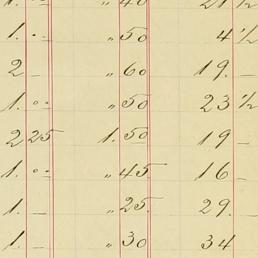 1. – „ 40 21 ½
1. – „ 50 4 ½
2 – „ 60 19. –
1. – „ 50 23 ½
2 25 1. 50 19 –
1. – „ 45 16 –
1. – „ 25. 29. –
1. – „ 30 34